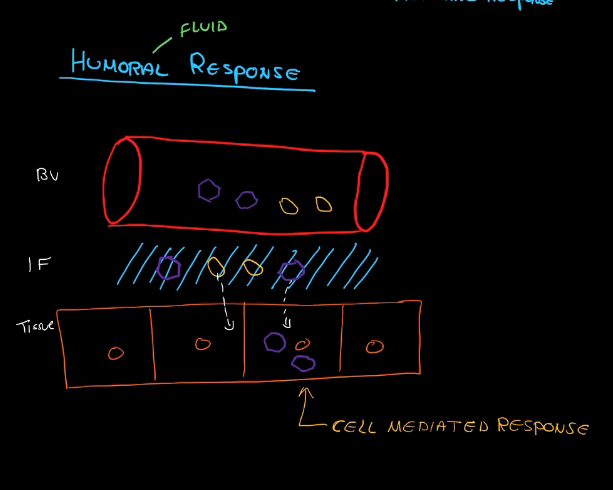 RESPONSE
FLUID
HUMORAL RESPONSE
BV
IF
Tissue
CELL MEDIATED RESPONSE